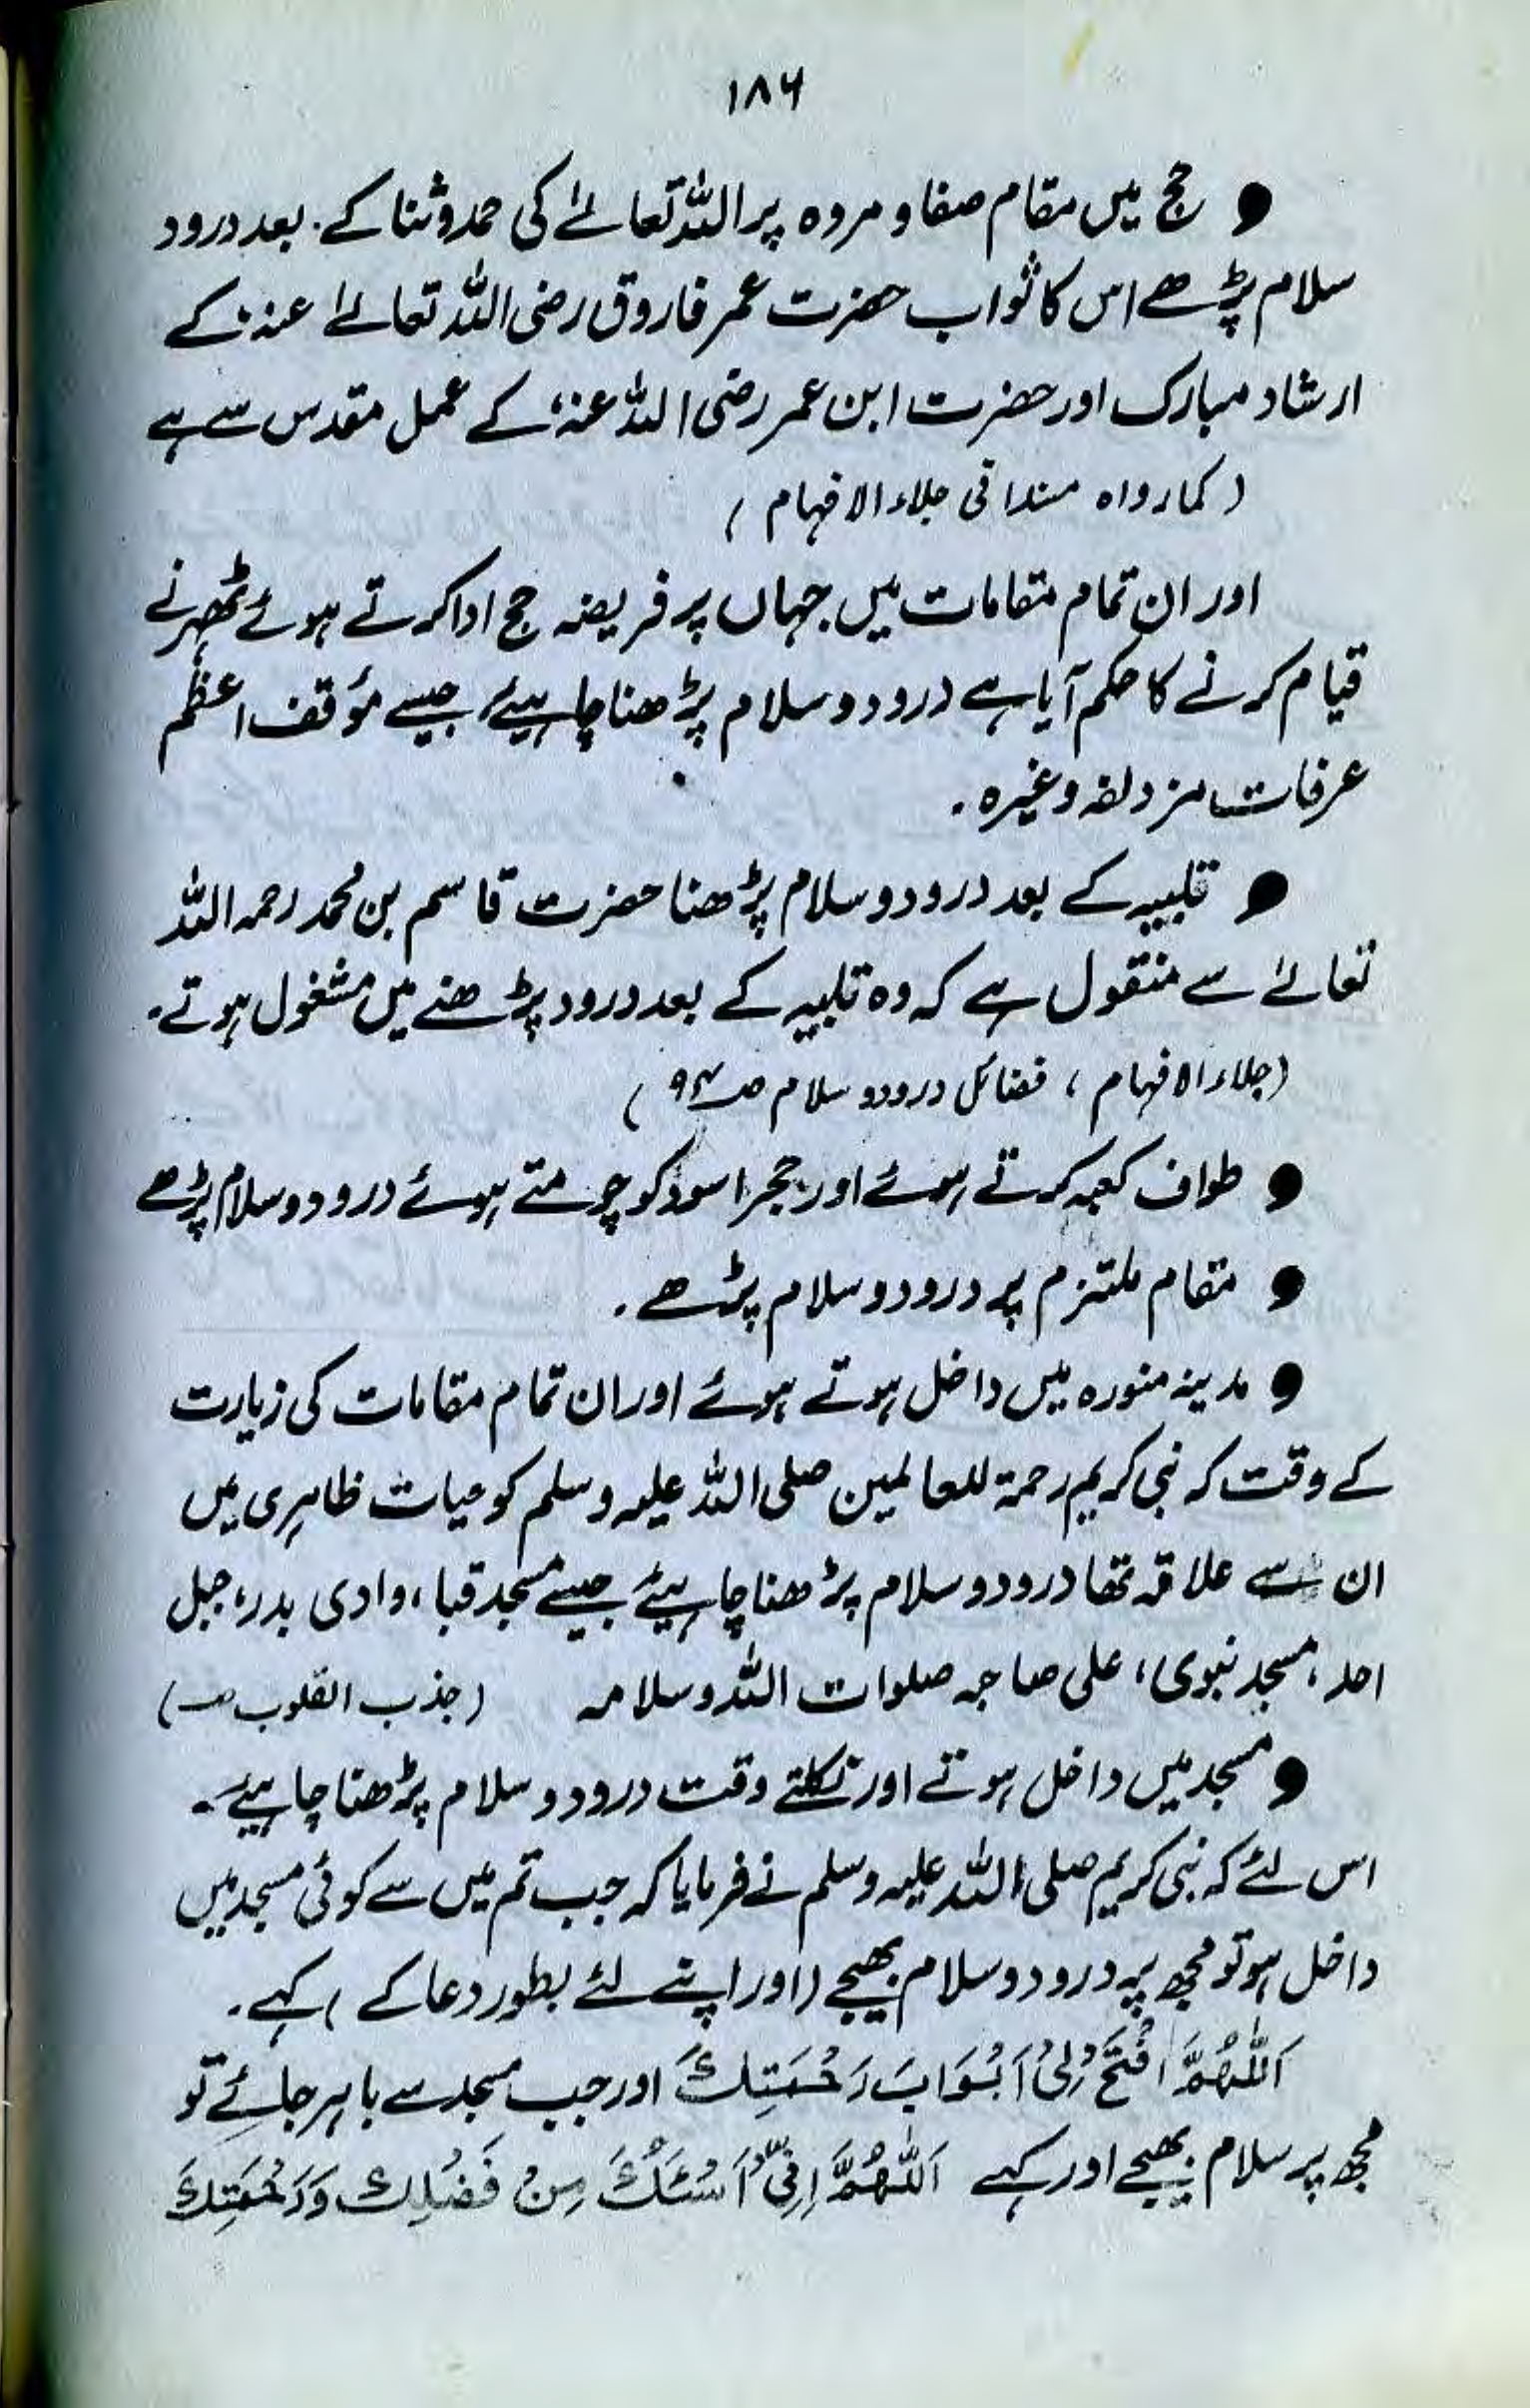 ۱۸۶
● حج میں مقام صفا و مروہ پر اللہ تعالےٰ کی حمد و ثنا کے۔ بعد درود
سلام پڑھے اس کا ثواب حضرت عمر فاروق رضی اللہ تعالےٰ عنہ، کے
ارشاد مبارک اور حضرت ابن عمر رضی اللہ عنہ، کے عمل مقدس سے ہے
(کما رواہ مسندا فی جلاء الافہام)
اور ان تمام مقامات میں جہاں پر فریضہ حج ادا کرتے ہوئے ٹھہرنے
قیام کرنے کا حکم آیا ہے درود و سلام پڑھنا چاہیئے، جیسے مؤقف اعظم
عرفات مزدلفہ وغیرہ۔
● تلبیہ کے بعد درود و سلام پڑھنا حضرت قاسم بن محمد رحمہ اللہ
تعالےٰ سے منقول ہے کہ وہ تلبیہ کے بعد درود پڑھنے میں مشغول ہوتے۔
(جلاء الافہام، فضائل درود و سلام صـ۹۴)
● طواف کعبہ کرتے ہوئے اور حجر اسود کو چومتے ہوئے درود و سلام پڑھے
● مقام ملتزم پر درود و سلام پڑھے۔
● مدینہ منورہ میں داخل ہوتے ہوئے اور ان تمام مقامات کی زیارت
کے وقت کہ نبی کریم رحمۃ للعالمین صلی اللہ علیہ وسلم کو حیات ظاہری میں
ان سے علاقہ تھا درود و سلام پڑھنا چاہیئے جیسے مسجد قبا، وادی بدر، جبل
احد، مسجد نبوی، علی صاحبہ صلوات اللہ وسلامہ (جذب القلوب صـ)
● مسجد میں داخل ہوتے اور نکلتے وقت درود و سلام پڑھنا چاہیئے۔
اس لئے کہ نبی کریم صلی اللہ علیہ وسلم نے فرمایا کہ جب تم میں سے کوئی مسجد میں
داخل ہو تو مجھ پہ درود و سلام بھیجے (اور اپنے لئے بطور دعا کے) کہے۔
اَللّٰهُمَّ افْتَحْ لِیْ اَبْوَابَ رَحْمَتِكَ اور جب مسجد سے باہر جائے تو
مجھ پر سلام بھیجے اور کہے اَللّٰهُمَّ اِنِّیْ اَسْئَلُكَ مِنْ فَضْلِكَ وَرَحْمَتِكَ